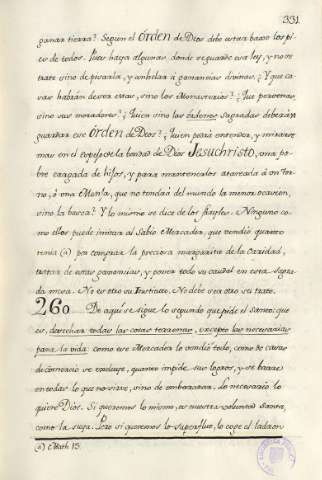 331
ganar tierra? Segun el Orden de Dios debe estar baxo los pi-
es de todos. Pues haya algunas, donde se guarde esa ley, y no se
trate sino de pisarla, y anhelar a ganancias divinas. ¿Y que ca-
sas habrán de ser estas, sino los Monasterios? ¿Que personas,
sino sus moradores? ¿Quien sino las órdenes sagradas deberán
guardar ese Orden de Dios? ¿Quien podrá entender, y mirarse
mas en el espejo de la bondad de Dios Jesuchristo,
bre cargada de hijos, y para mantenerlos atareada á un Tor-
no, ó una Mansa, que no tendrá del mundo la menor ocasion,
sino la busca? Y lo mismo se dice de los simples. Ninguno co-
mo ellos puede imitar al Sabio Mercader, que vendió quanto
tenia (a) por comprar la preciosa margarita de la Caridad,
tratar de estas ganancias, y poner todo su caudal en esta sagra-
da mesa. No es otro su Instituto. No debe ser otro su trato.
260 De aquí se sigue lo segundo que pide el santo: que
es, desechar todas las cosas terrenas, excepto las necesarias
para la vida: como ese Mercader lo vendió todo, como de casas
de comercio se excluye, quanto impide sus logros, y se barre
en todas lo que no sirve, sino de embarazar, lo necesario lo
quiere Dios. Si queremos lo mismo, es nuestra voluntad santa,
como la suya. Pero si queremos lo superfluo, lo coge el ladron
(a) Math 13.